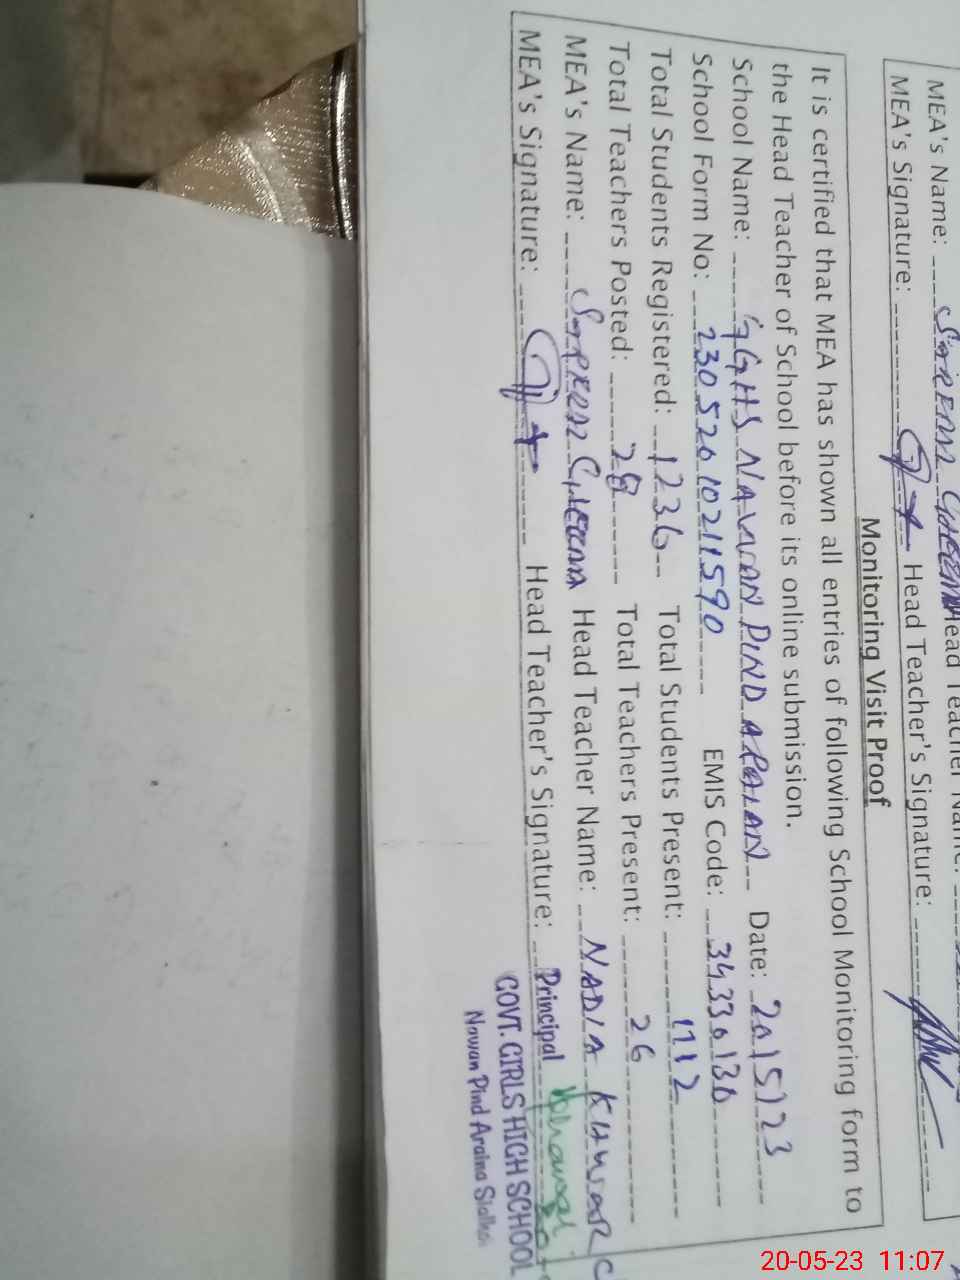 MEA's Name:
MEA's Signature: Head Teacher's Signature:
Monitoring Visit Proof
It is certified that MEA has shown all entries of following School Monitoring form to
the Head Teacher of School before its online submission.
School Name: GGHS NAWAN PIND ARAIAN Date: 20/5/23
School Form No: 23052010211590 EMIS Code: 34330130
Total Students Registered: 1236 Total Students Present: 1112
Total Teachers Posted: 28 Total Teachers Present: 26
MEA's Name: CHEEMA Head Teacher Name: NADIA
MEA's Signature: Head Teacher's Signature: Principal
GOVT. GIRLS HIGH SCHOOL
Nawan Pind Araina
20-05-23 11:07